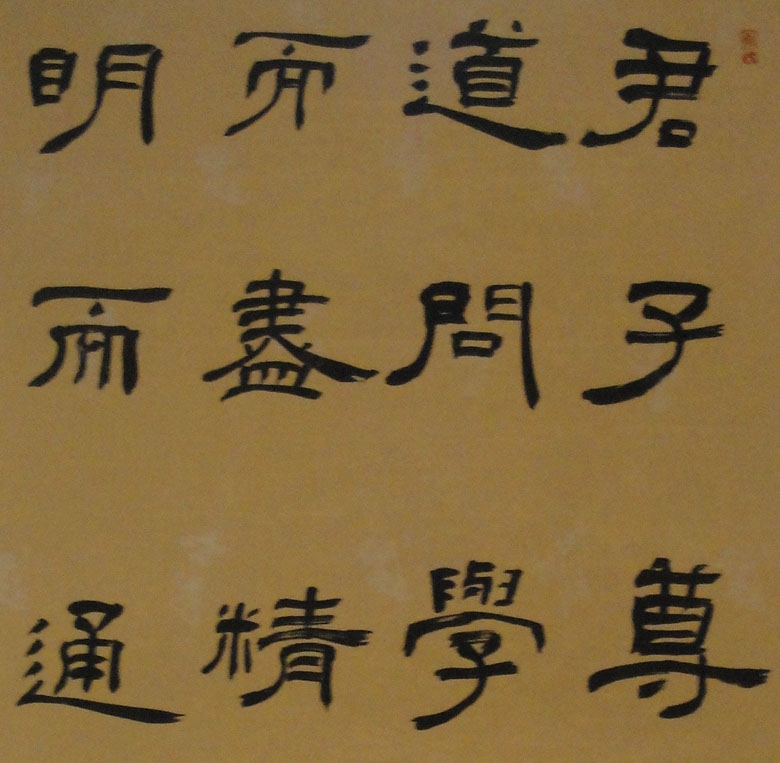 君子尊
道問學
而盡精
明而通